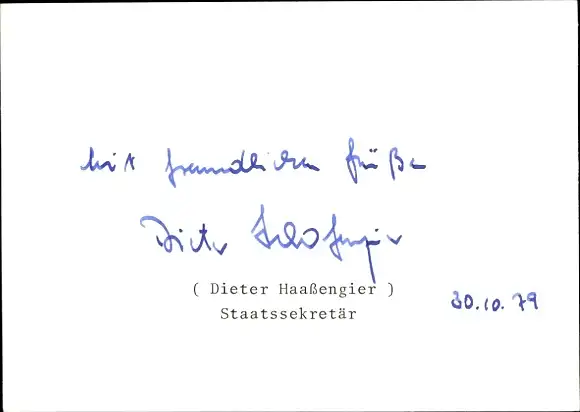 Mit freundlichen Grüßen
Dieter Haaßengier
( Dieter Haaßengier )
Staatssekretär
30.10.79